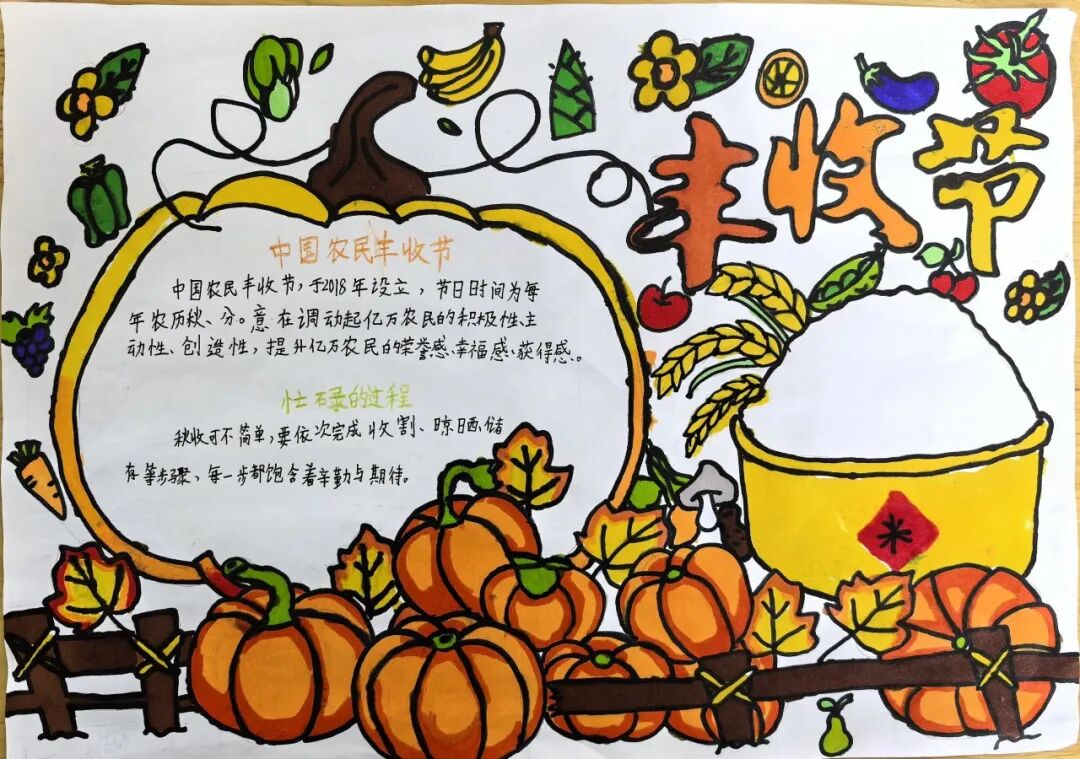 丰收节
中国农民丰收节
中国农民丰收节,于2018年设立,节日时间为每
年农历秋、分。意在调动起亿万农民的积极性、主
动性、创造性,提升亿万农民的荣誉感、幸福感、获得感。
忙碌的过程
秋收可不简单,要依次完成收割、晾晒、储
存等步骤,每一步都饱含着辛勤与期待。
米